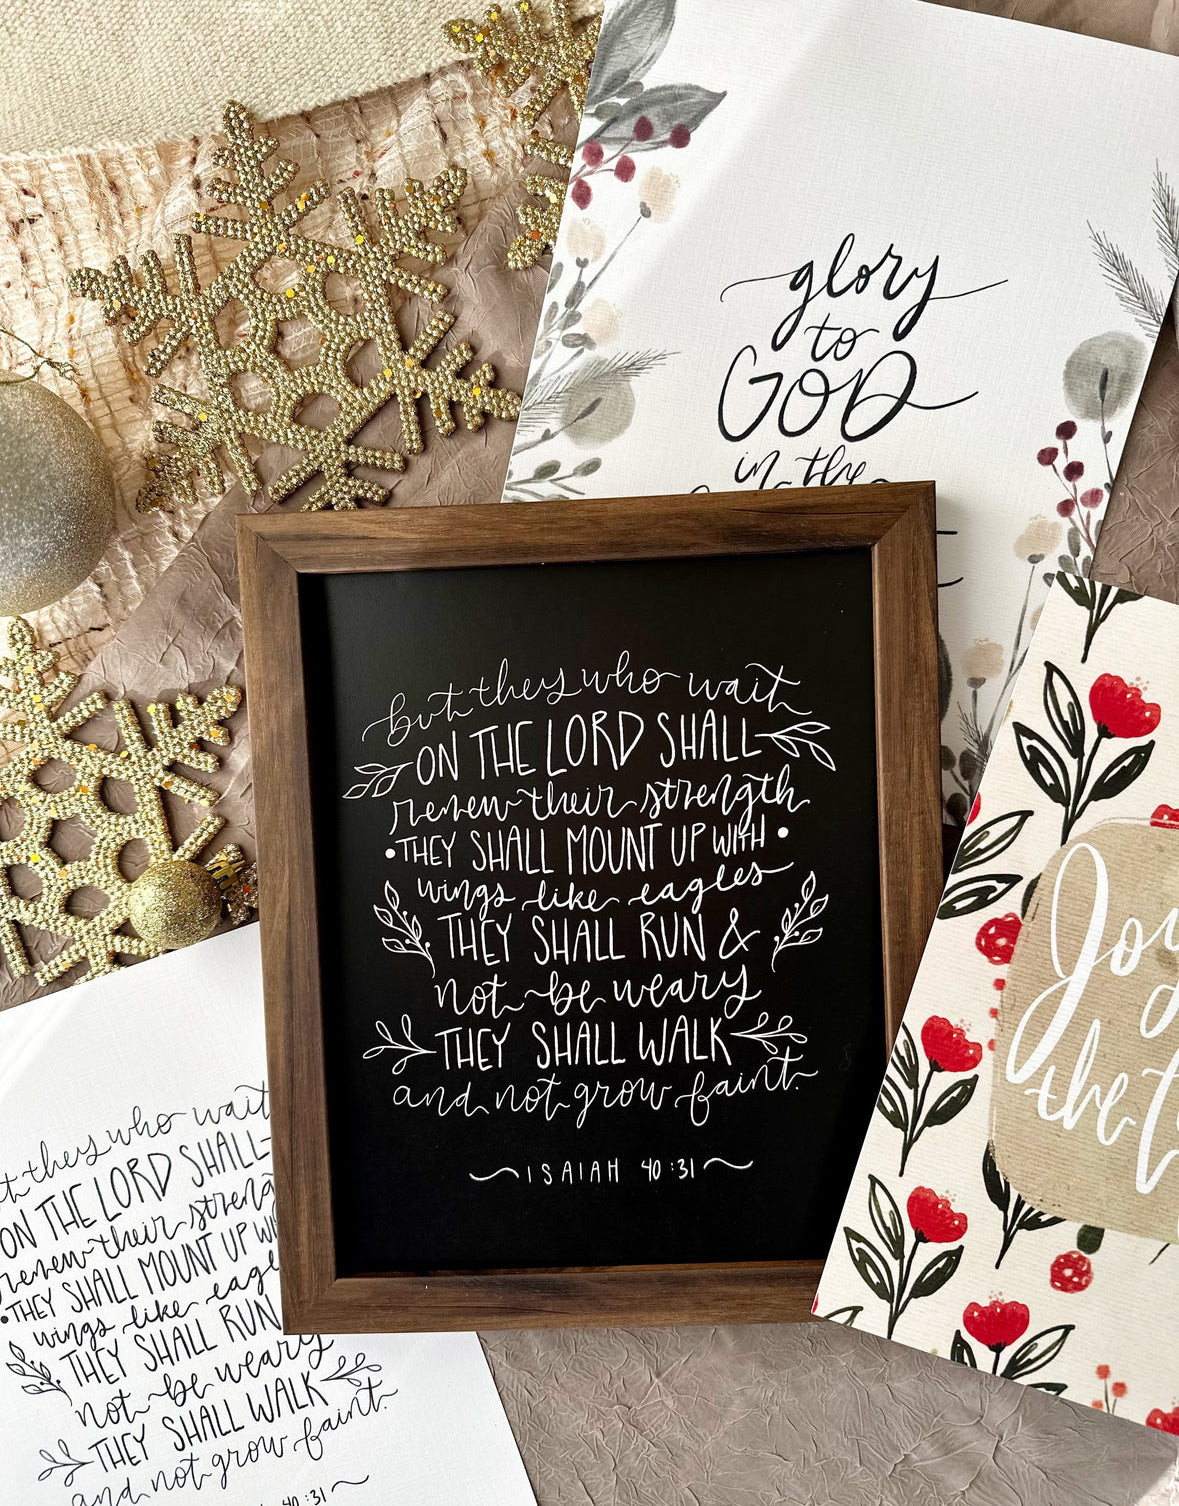 glory
to
GOD
in the
but they who wait
ON THE LORD SHALL
renew their strength
• THEY SHALL MOUNT UP WITH •
wings like eagles
THEY SHALL RUN &
not be weary
THEY SHALL WALK
and not grow faint.
ISAIAH 40:31
Joy
the
they who wait
ON THE LORD SHALL
renew their
• THEY SHALL MOUNT UP
wings like
THEY SHALL RUN
not be weary
THEY SHALL WALK
and not grow faint.
40:31